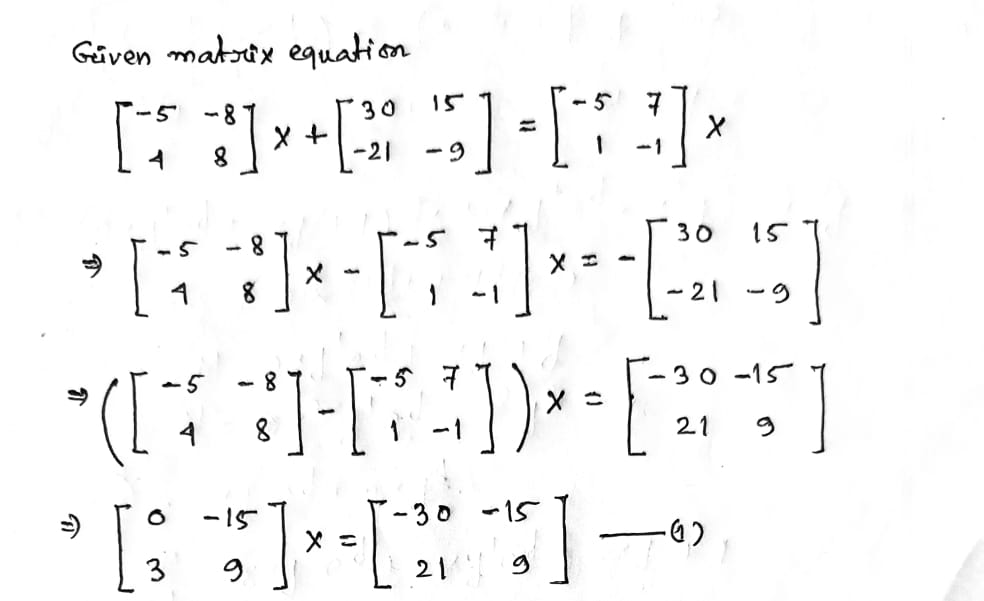 Given matrix equation
[-5 -8; 4 8] X + [30 15; -21 -9] = [-5 7; 1 -1] X
⇒ [-5 -8; 4 8] X - [-5 7; 1 -1] X = - [30 15; -21 -9]
⇒ ([-5 -8; 4 8] - [-5 7; 1 -1]) X = [-30 -15; 21 9]
⇒ [0 -15; 3 9] X = [-30 -15; 21 9] — (1)